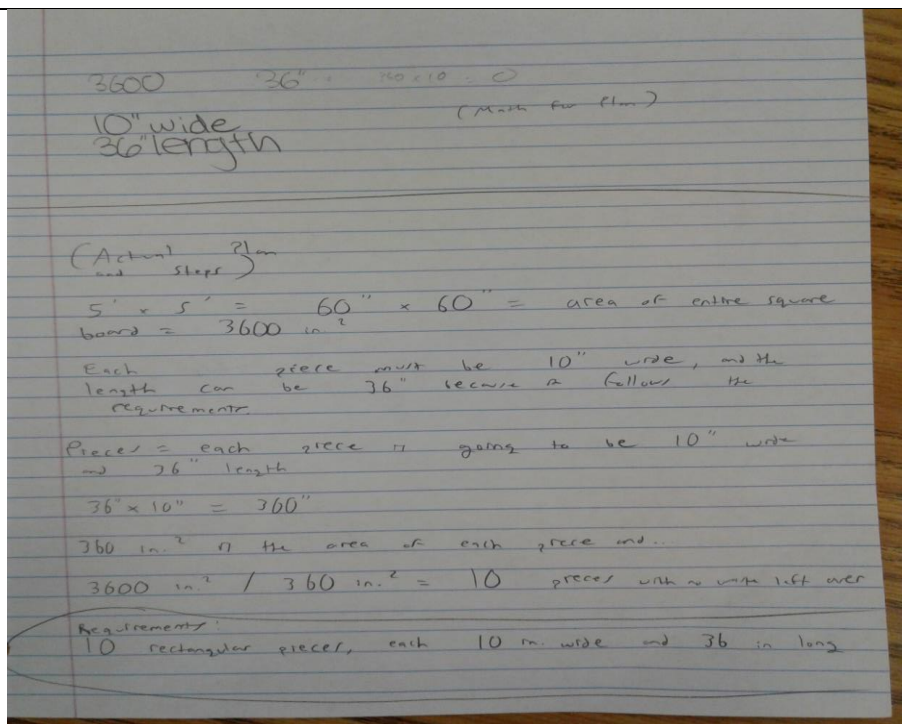 3600 36"
(Math for Plan)
10" wide
36" length
(Actual Plan
and steps)
5' x 5' = 60" x 60" = area of entire square
board = 3600 in.²
Each piece must be 10" wide, and the
length can be 36" because it follows the
requirements.
Pieces = each piece is going to be 10" wide
and 36" length
36" x 10" = 360"
360 in.² is the area of each piece and...
3600 in.² / 360 in.² = 10 pieces with no waste left over
Requirements:
10 rectangular pieces, each 10 in. wide and 36 in long